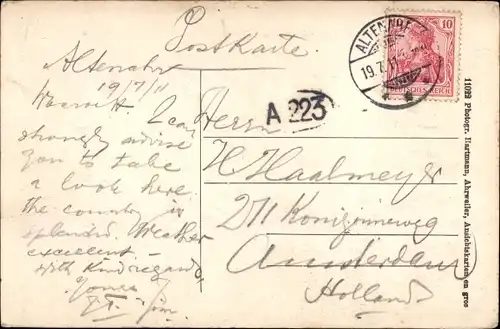 Postkarte
Altenahr
19/7/11
I can
strongly advise
you to take
a look here.
the country is
splendid. Weather
excellent –
With kind regards
Yours
Jim
ALTENAHR
19.7.11
10
DEUTSCHES REICH
A 223
Herrn
H Haalmeyer
211 Koninginneweg
Amsterdam
Holland
11029 Photogr. Hartmann, Ahrweiler, Ansichtskarten en gros